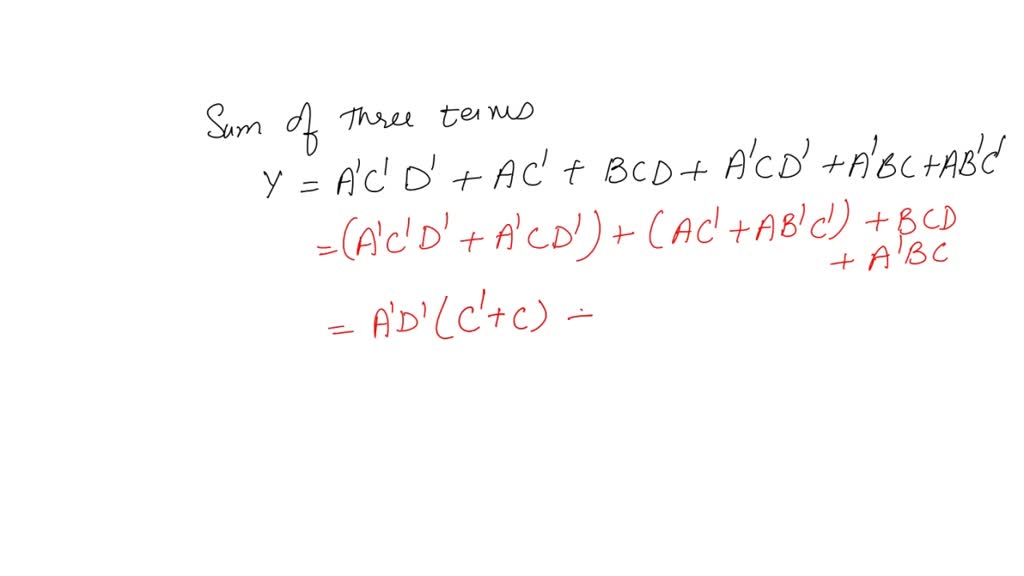 Sum of three terms
Y = A'C'D' + AC' + BCD + A'CD' + A'BC + AB'C'
= (A'C'D' + A'CD') + (AC' + AB'C') + BCD
+ A'BC
= A'D' (C' + C) -